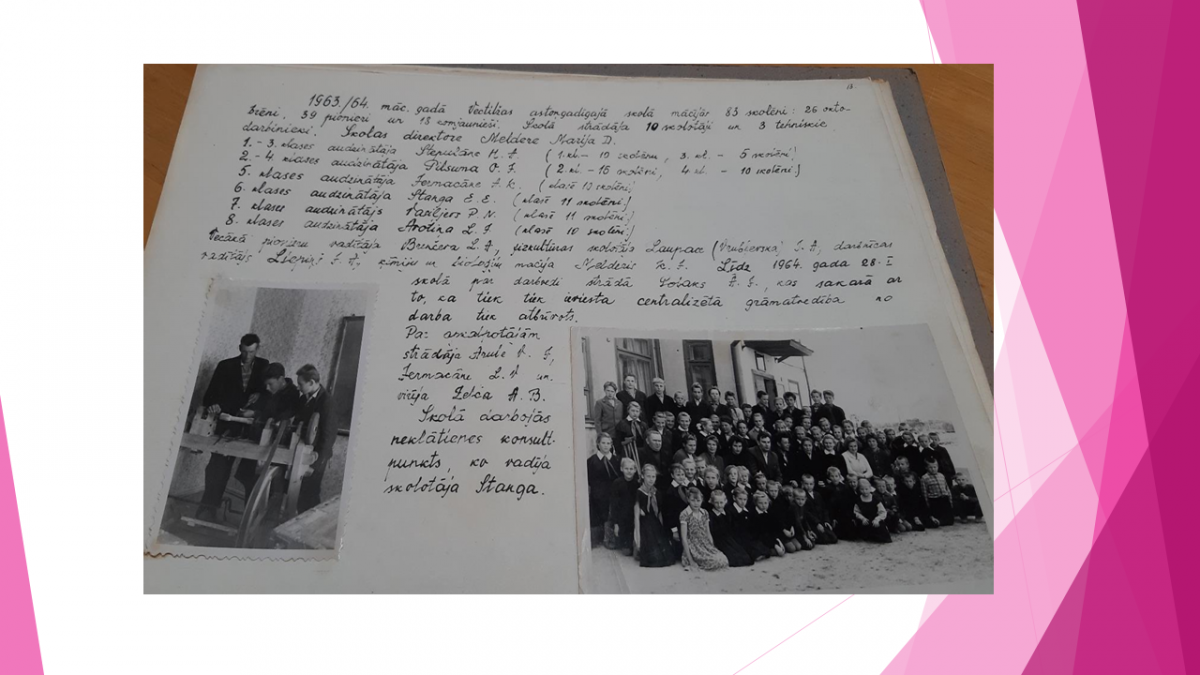 13.
1963./64. māc. gadā Vectilžas astongadīgajā skolā mācījās 83 skolēni: 26 okto-
brēni, 39 pionieri un 18 komjaunieši. Skolā strādāja 10 skolotāji un 3 tehniskie
darbinieki. Skolas direktore Meldere Marija D.
1.-3. klases audzinātāja M. J. (1. kl. - 10 skolēnu, 3. kl. - 5 skolēni)
2.-4. klases audzinātāja Pilsuma O. J. (2. kl. - 16 skolēni, 4. kl. - 10 skolēni.)
5. klases audzinātāja Jermacāne J. K. (klasē skolēni)
6. klases audzinātāja Stanga E. E. (klasē 11 skolēni.)
7. klases audzinātājs Vasiljevs P. N. (klasē 11 skolēni.)
8. klases audzinātāja Aroliņa L. J. (klasē 10 skolēni.)
Vecākā pionieru vadītāja L. A., fizkultūras skolotājs Laupac J. A., darbnīcas
vadītājs J. A., ķīmiju un bioloģiju mācīja Melderis K. J. Līdz 1964. gada 28. I
skolā par darbvedi strādā A. J., kas sakarā ar
to, ka tiek tiek ieviesta centralizētā grāmatvedība no
darba tiek atbrīvots.
Par apkalpotājām
strādāja V. J.,
Jermacāne L. V. un
virēja Zelča A. B.
Skolā darbojās
neklātienes konsult.
punkts, ko vadīja
skolotāja Stanga.